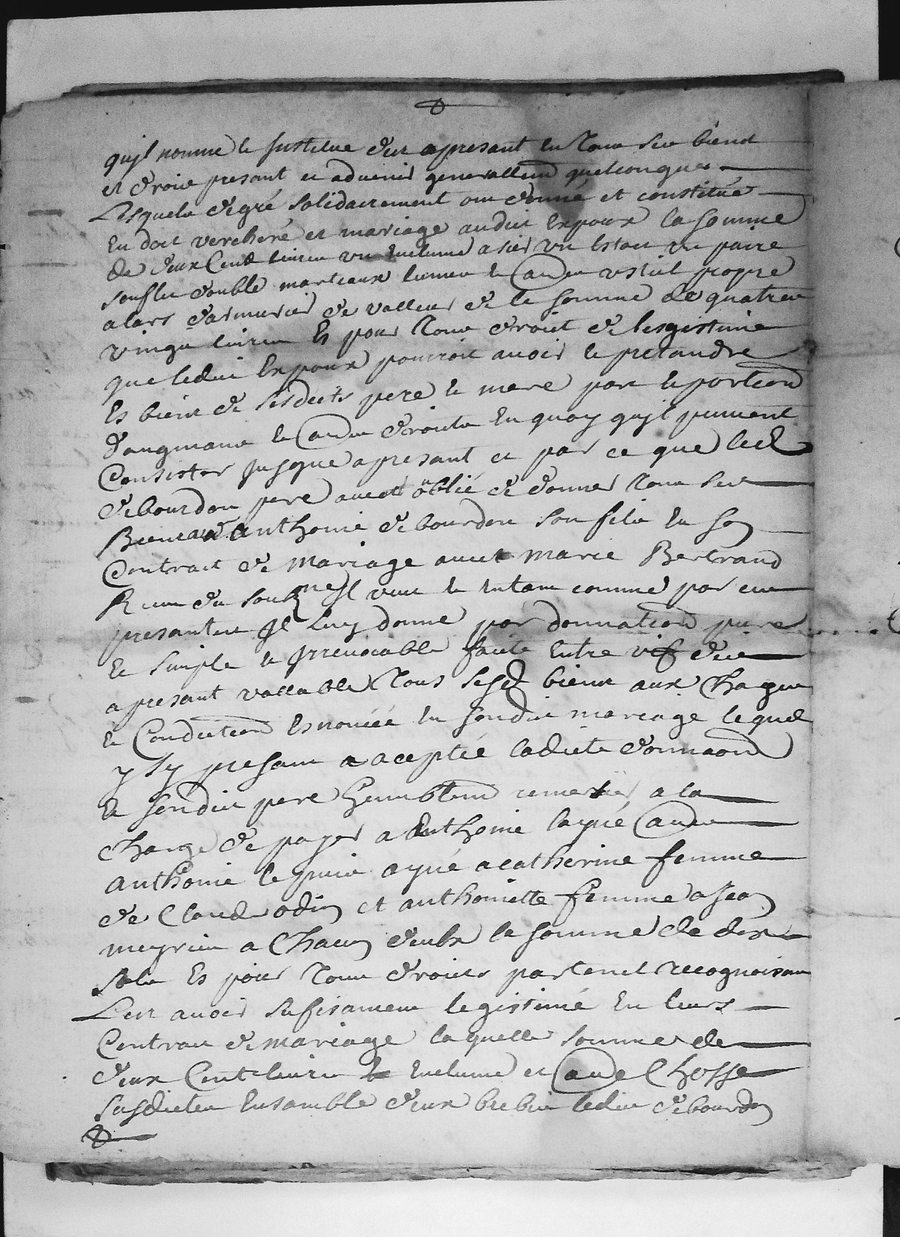 qujl nomme et Institue des apresant en tous ses biens
et droix presant et advenir generallem quelconques
Lesquels de gré solidairement ont donné et constitué
En dot verchere et mariage audit Expoux la somme
de deux Cent livres un Enclume a pied un Estau un paire
souflet double marteaux limes et autres ustiel propre
a lars d'armurier de valleur de la somme de quatre
vingts livres Es pour tous droit de lesgistime
que ledit Expoux pourroit avoir et pretandre
Es biens de sesdicts pere et mere part et portion
d'augmant et autres droits En quoy qujl puissent
Consister jusque apresant et par ce que led
debourdon pere avoit oblié de donner tous ses
Biens a Anthoine debourdon son fils En son
Contrait de mariage avec marie Bertrand
jl veut et entant comme par ces
presantes jl luy donne par donnation pure
et simple et jrrevocable faite Entre vif des
apresant vallable tous sesd biens aux Charges
et Condiction Esnoncée En sondit mariage lequel
y sy presant a acceptée ladicte donnaon
et sondit pere humblem remersier a la
Charge de payer a Anthoine layné autre
Anthoine le puis ayné a catherine femme
de Claude odin et anthoinette femme a Jean
meyrieu a Chacun d'eulx la somme de dix
sols Es pour tous droits paternel recognoissant
Les avoir sufisament legistimé En leurs
Contrau de mariage laquelle somme de
deux Cent livres et Enclume et autre Chosse
susdictes Ensamble deux brebis ledit debourdon